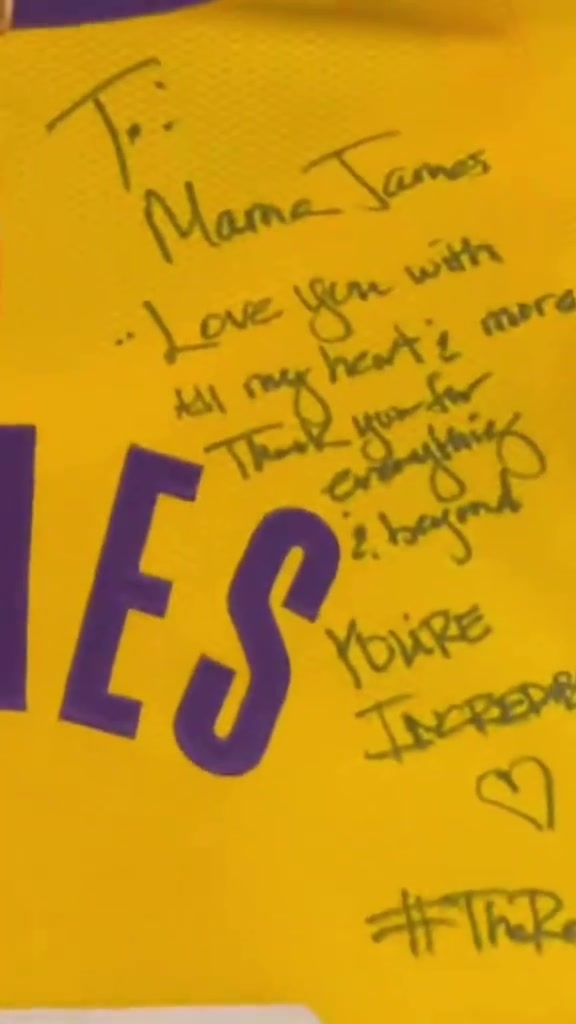 To:
Mama James
..Love you with
All my heart & more
Thank you for
everything
& beyond
ES
YOU'RE
INCREDIB
♡
#TheRe